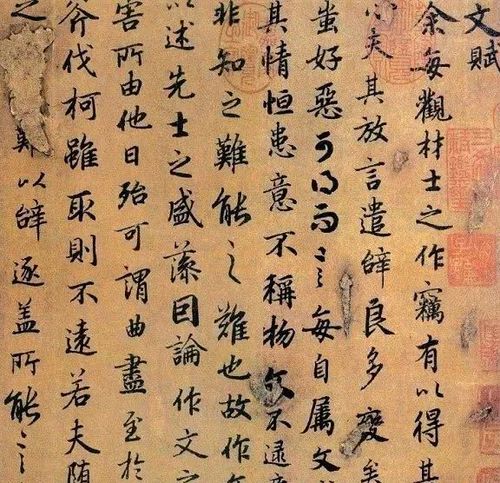 文賦
余每觀材士之作竊有以得其
心夫其放言遣辭良多變矣
蚩好惡可得而言每自属文
其情恒患意不稱物文不逮意
非知之難能之難也故作文
以述先士之盛藻因論作文之
害所由他日殆可謂曲盡至於
斧伐柯雖取則不遠若夫随
之難以辭逐盖所能言